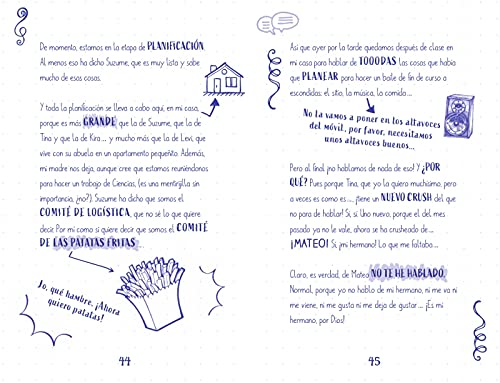 De momento, estamos en la etapa de PLANIFICACIÓN.
Al menos eso ha dicho Suzume, que es muy lista y sabe
mucho de esas cosas.
Y toda la planificación se lleva a cabo aquí, en mi casa,
porque es más GRANDE que la de Suzume, que la de
Tina y que la de Kira... y mucho más que la de Levi, que
vive con su abuela en un apartamento pequeñito. Además,
mi madre nos deja, aunque cree que estamos reuniéndonos
para hacer un trabajo de Ciencias, (es una mentirijilla sin
importancia, ¿no?). Suzume ha dicho que somos el
COMITÉ DE LOGÍSTICA, que no sé lo que quiere
decir. Por mí como si quiere decir que somos el COMITÉ
DE LAS PATATAS FRITAS...
Jo, qué hambre. ¡Ahora
quiero patatas!
44
Así que ayer por la tarde quedamos después de clase en
mi casa para hablar de TOOODAS las cosas que había
que PLANEAR para hacer un baile de fin de curso a
escondidas: el sitio, la música, la comida...
No la vamos a poner en los altavoces
del móvil, por favor, necesitamos
unos altavoces buenos...
Pero al final ¡no hablamos de nada de eso! Y ¿POR
QUÉ? Pues porque Tina, que yo la quiero muchísimo, pero
a veces es como es..., ¡tiene un NUEVO CRUSH del que
no para de hablar! Sí, sí. Uno nuevo, porque el del mes
pasado ya no le vale, ahora se ha crusheado de...
¡MATEO! Sí, ¡mi hermano! Lo que me faltaba...
Claro, es verdad, de Mateo NO TE HE HABLADO.
Normal, porque yo no hablo de mi hermano, ni me va ni
me viene, ni me gusta ni me deja de gustar... ¡Es mi
hermano, por Dios!
45